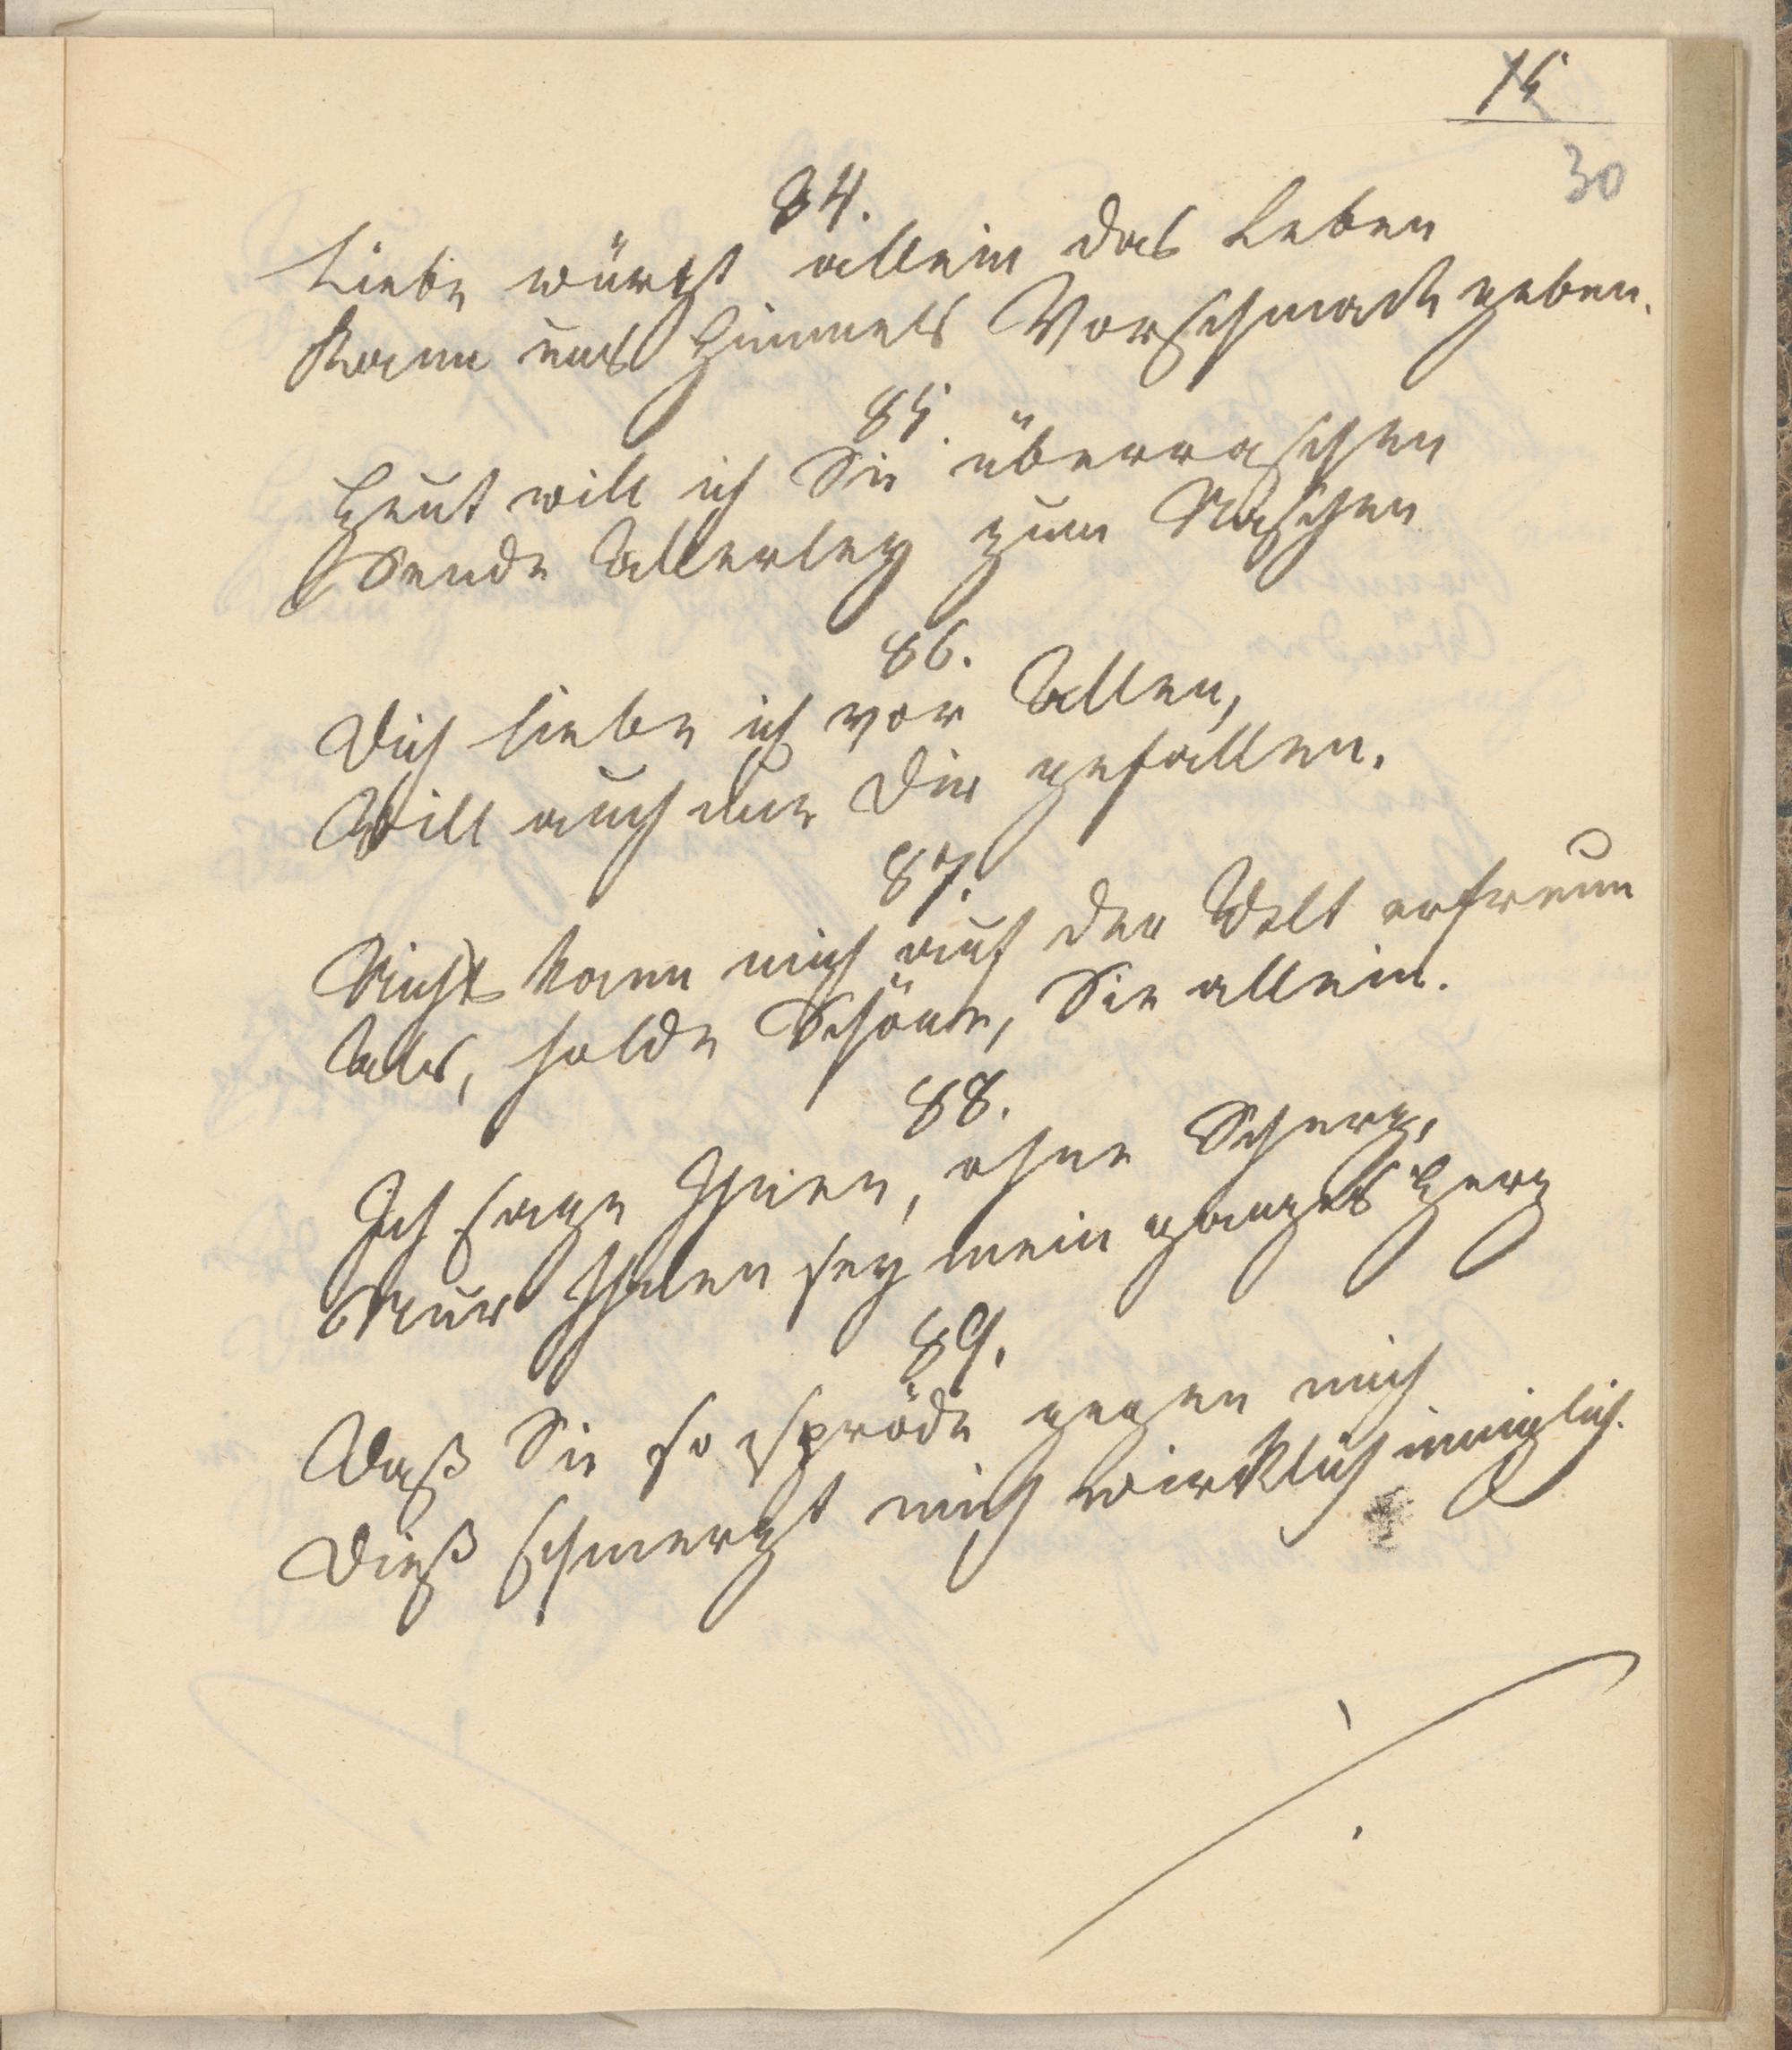 15
30
84.
Liebe würzt allein das Leben
Kann uns Himmels Vorschmack geben.
85.
Heut will ich Sie überraschen
Sende Allerley zum Naschen
86.
Dich liebe ich vor Allen,
Will auch nur Dir gefallen.
87.
Nichts kann mich auf der Welt erfreun
Als, holde Schöne, Sie allein.
88.
Ich sage Ihnen, ohne Scherz,
Nur Ihnen sey mein ganzes Herz
89.
Daß Sie so spröde gegen mich
Dieß schmerzt mich wirklich inniglich.